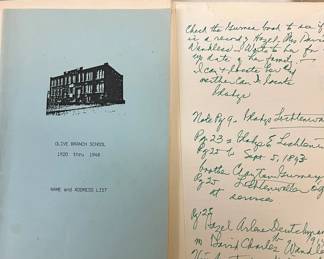 OLIVE BRANCH SCHOOL
1920 thru 1948
NAME and ADDRESS LIST
Check the Gurnea book to see if
is a record Hazel, Mrs David
Wandless - I wrote to her for
up date of her family.
I can't locate her Red
neither can I locate
Gladys
Note Pg 9 - Gladys Lichtenwa
Pg 23 = Gladys E Lichten
Pg 25 b Sept 5, 1893
brother Clayton Gurnsey
Pg 25 Lichtenwalter
at service
Pg 25
Hazel Arlene Deutschman
m David Charles Wandle